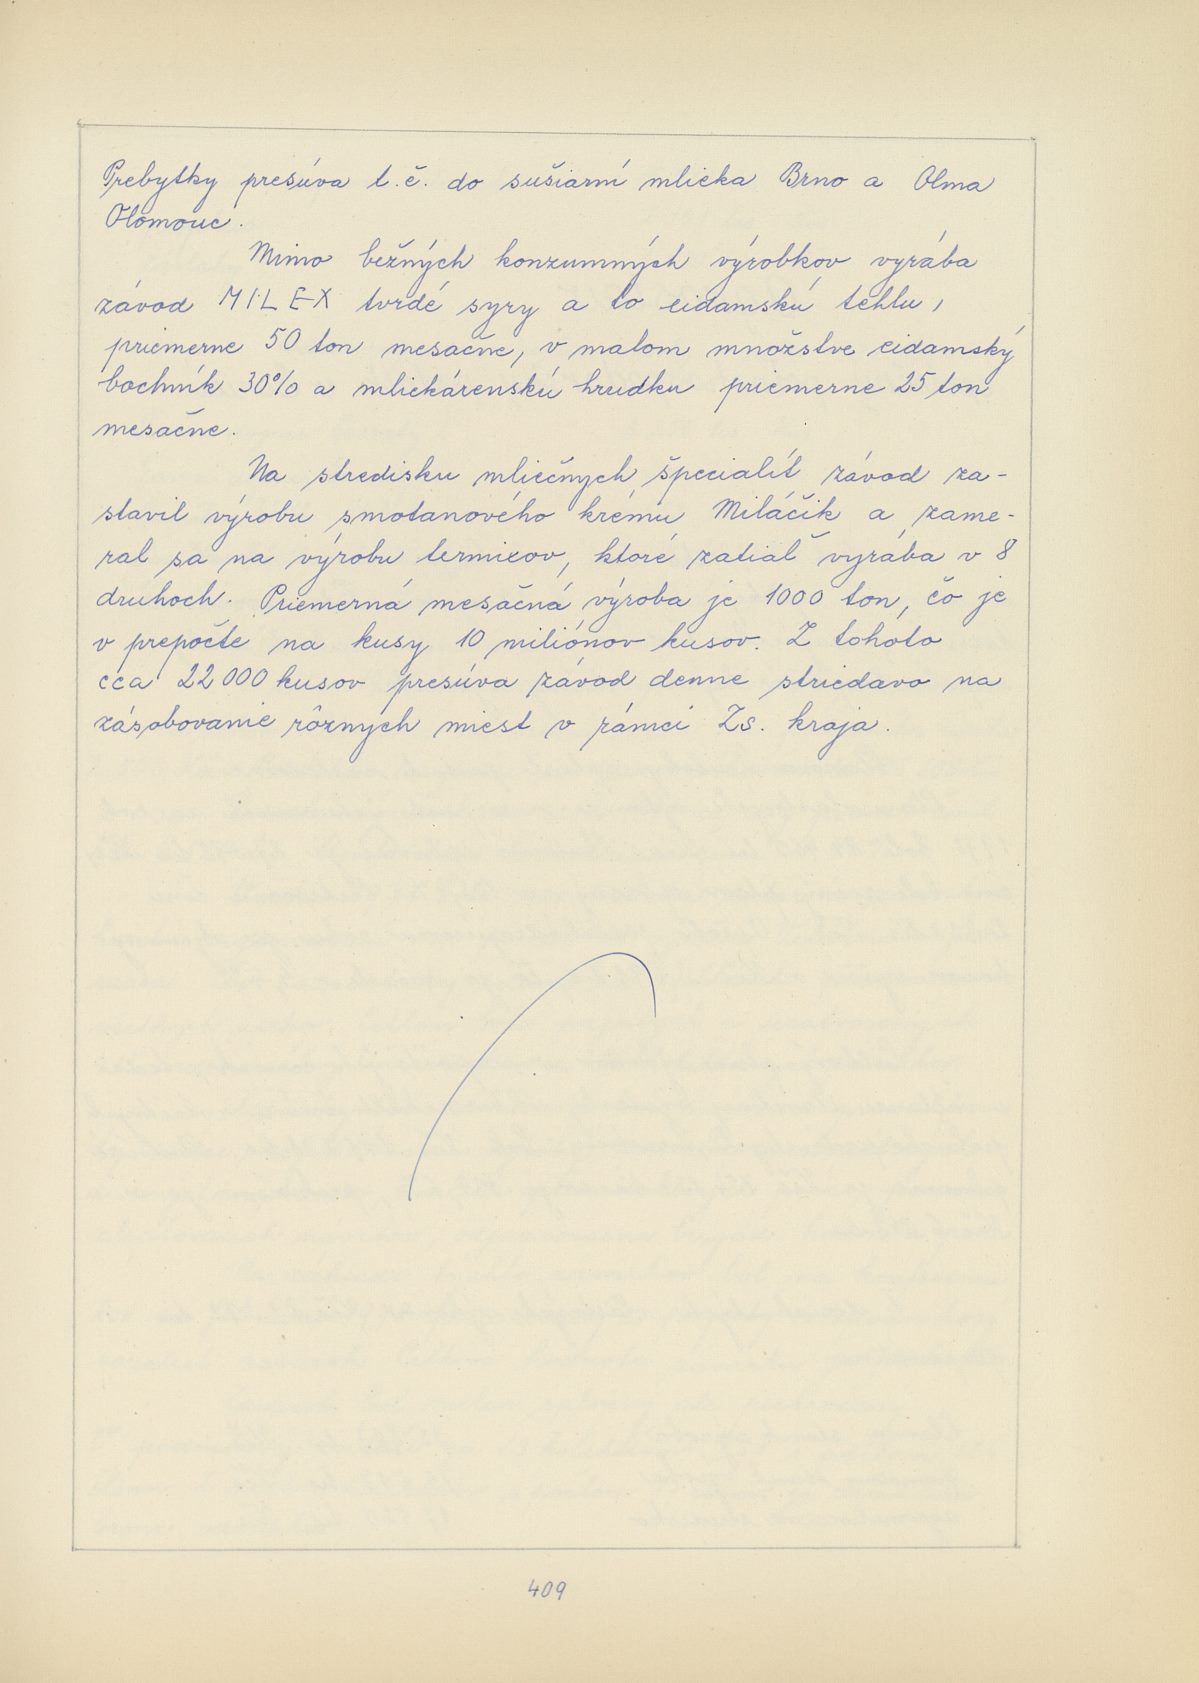 Prebytky presúva t.č. do sušiarní mlieka Brno a Olma
Olomouc.
Mimo bežných konzumných výrobkov vyrába
závod MILEX tvrdé syry a to eidamskú tehlu,
priemerne 50 ton mesačne, v malom množstve eidamský
bochník 30% a mliekárenskú hrudku priemerne 25 ton
mesačne.
Na stredisku mliečnych špecialít závod za-
stavil výrobu smotanového krému Miláčik a zame-
ral sa na výrobu termixov, ktoré zatiaľ vyrába v 8
druhoch. Priemerná mesačná výroba je 1000 ton, čo je
v prepočte na kusy 10 miliónov kusov. Z tohoto
cca 22 000 kusov presúva závod denne striedavo na
zásobovanie rôznych miest v rámci Zs. kraja.
409